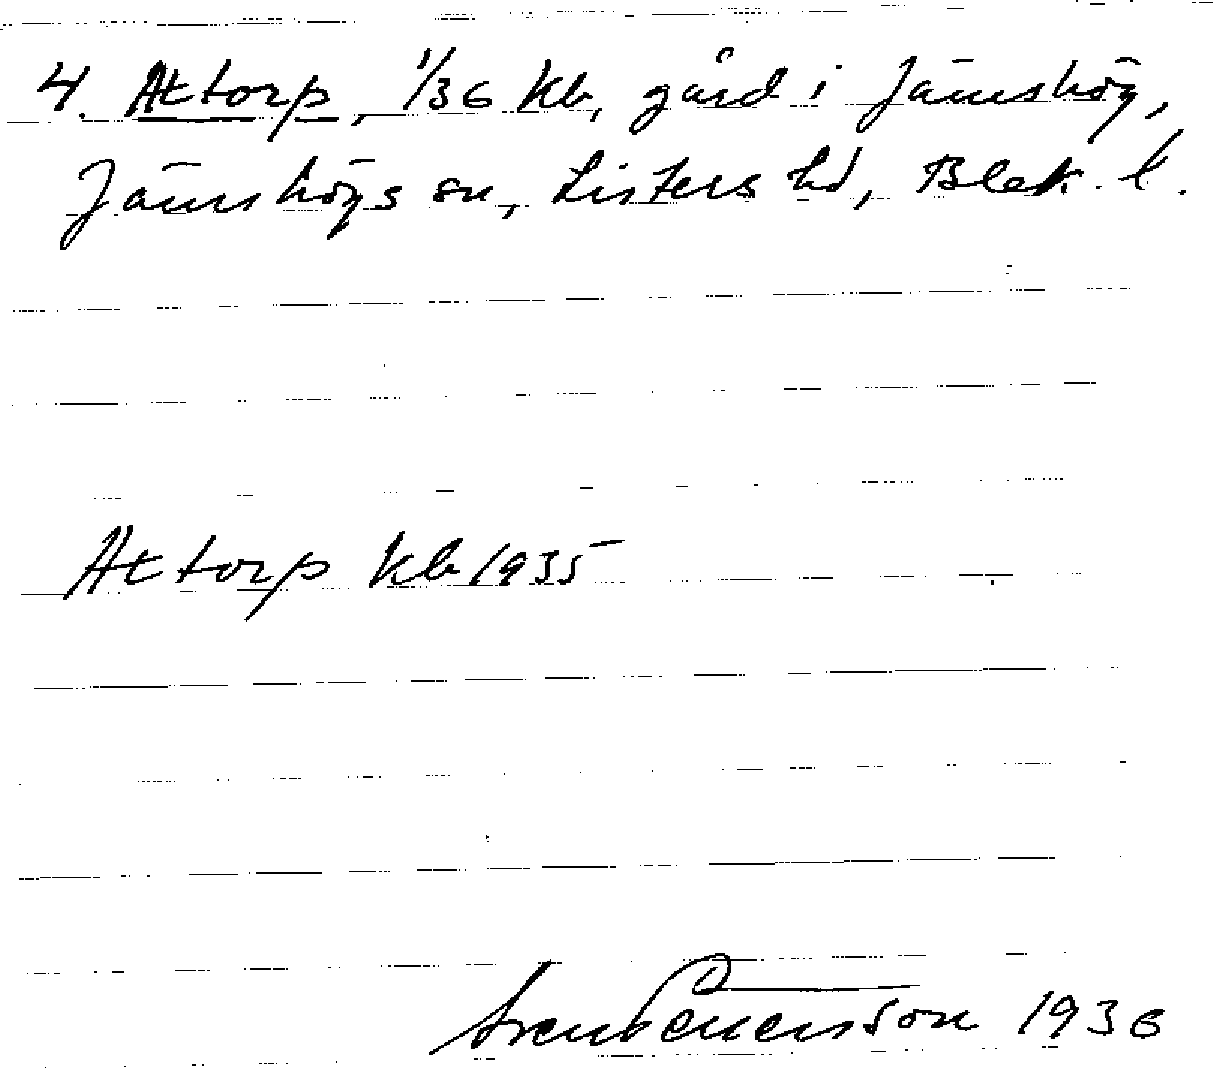 4. Aktorp, 1/36 kb, gård i Jämshög,
Jämshögs sn, Listers hd, Blek. l.
Aktorp kb 1935
1936